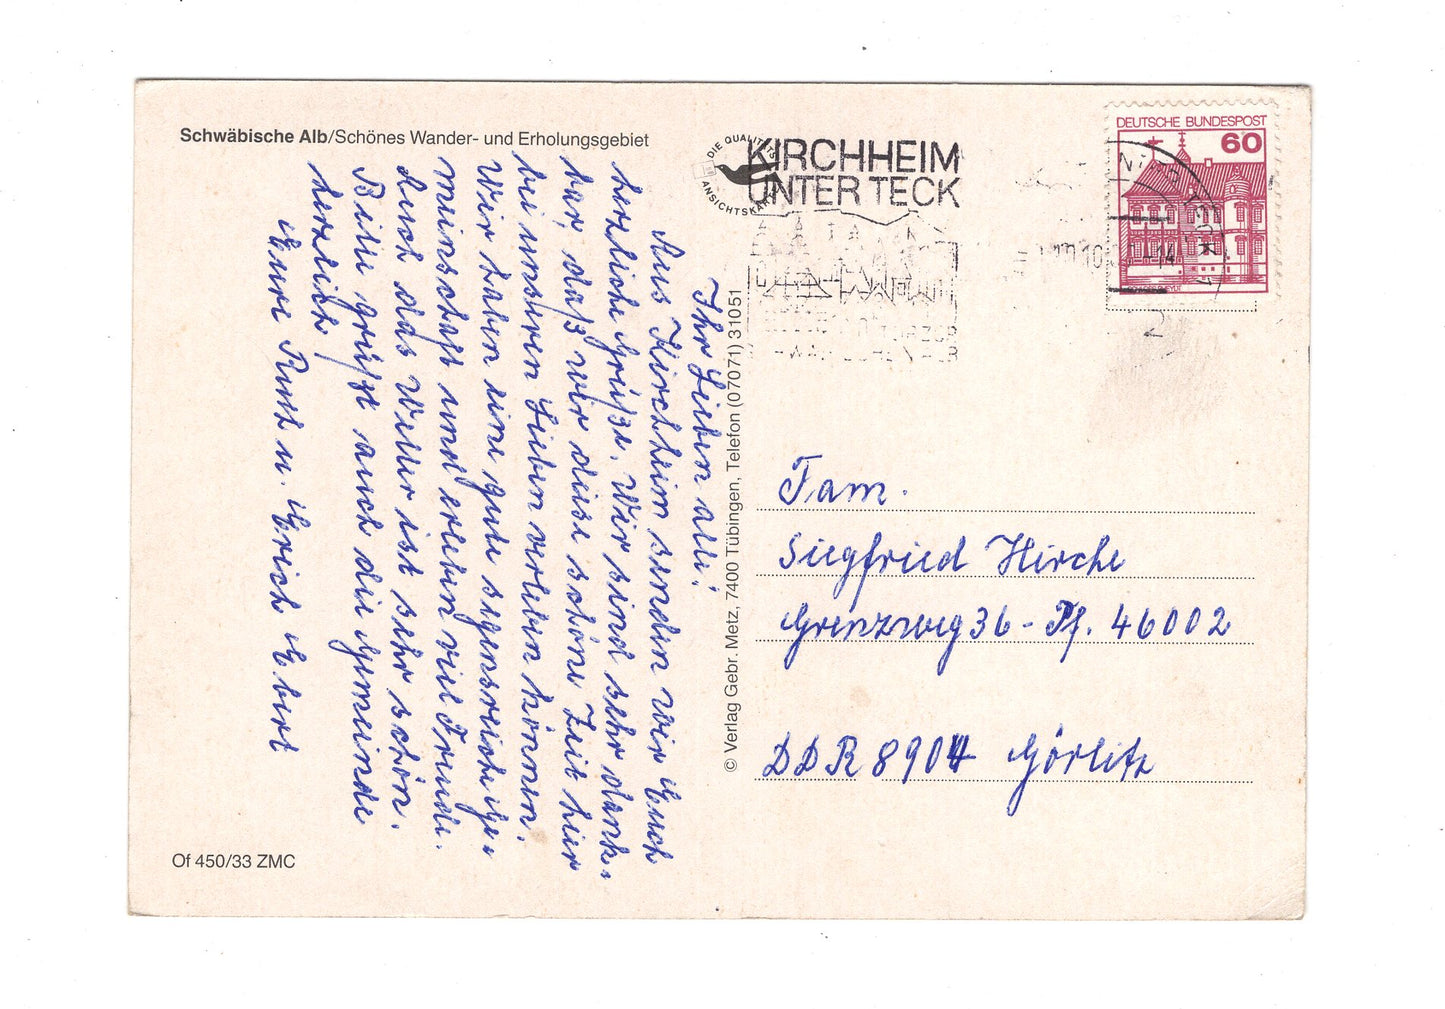 Schwäbische Alb/Schönes Wander- und Erholungsgebiet
Ihr Lieben alle!
Aus Kirchheim senden wir Euch
herzliche Grüße. Wir sind sehr dank-
bar, daß wir diese schöne Zeit hier
bei unseren Lieben verleben können.
Wir haben eine gute segensreiche Ge-
meinschaft und erleben viel Freude.
Auch das Wetter ist sehr schön.
Bitte grüßt auch die Gemeinde
herzlich!
Eure Ruth u. Erich Ebert
Of 450/33 ZMC
© Verlag Gebr. Metz, 7400 Tübingen, Telefon (07071) 31051
DIE QUALITÄTS
ANSICHTSKARTE
KIRCHHEIM
UNTER TECK
DEUTSCHE BUNDESPOST
60
Fam.
Siegfried Hirche
Grenzweg 36 - Pf. 46002
DDR 8904 Görlitz